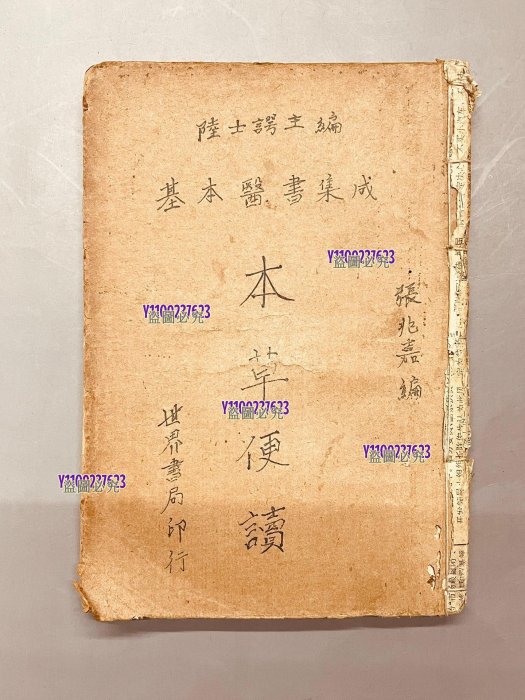 陸士諤主編
基本醫書集成
張兆嘉編
本草便讀
世界書局印行
Y1100237623
盜圖必究
Y1100237623
盜圖必究
Y1100237623
盜圖必究
Y1100237623
盜圖必究
Y1100237623
盜圖必究